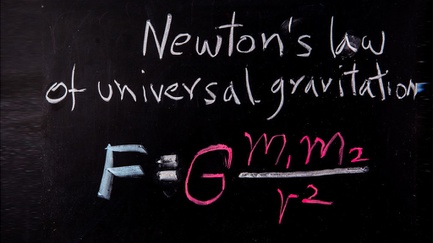 Newton's law
of universal gravitation
F = G m₁m₂/r²